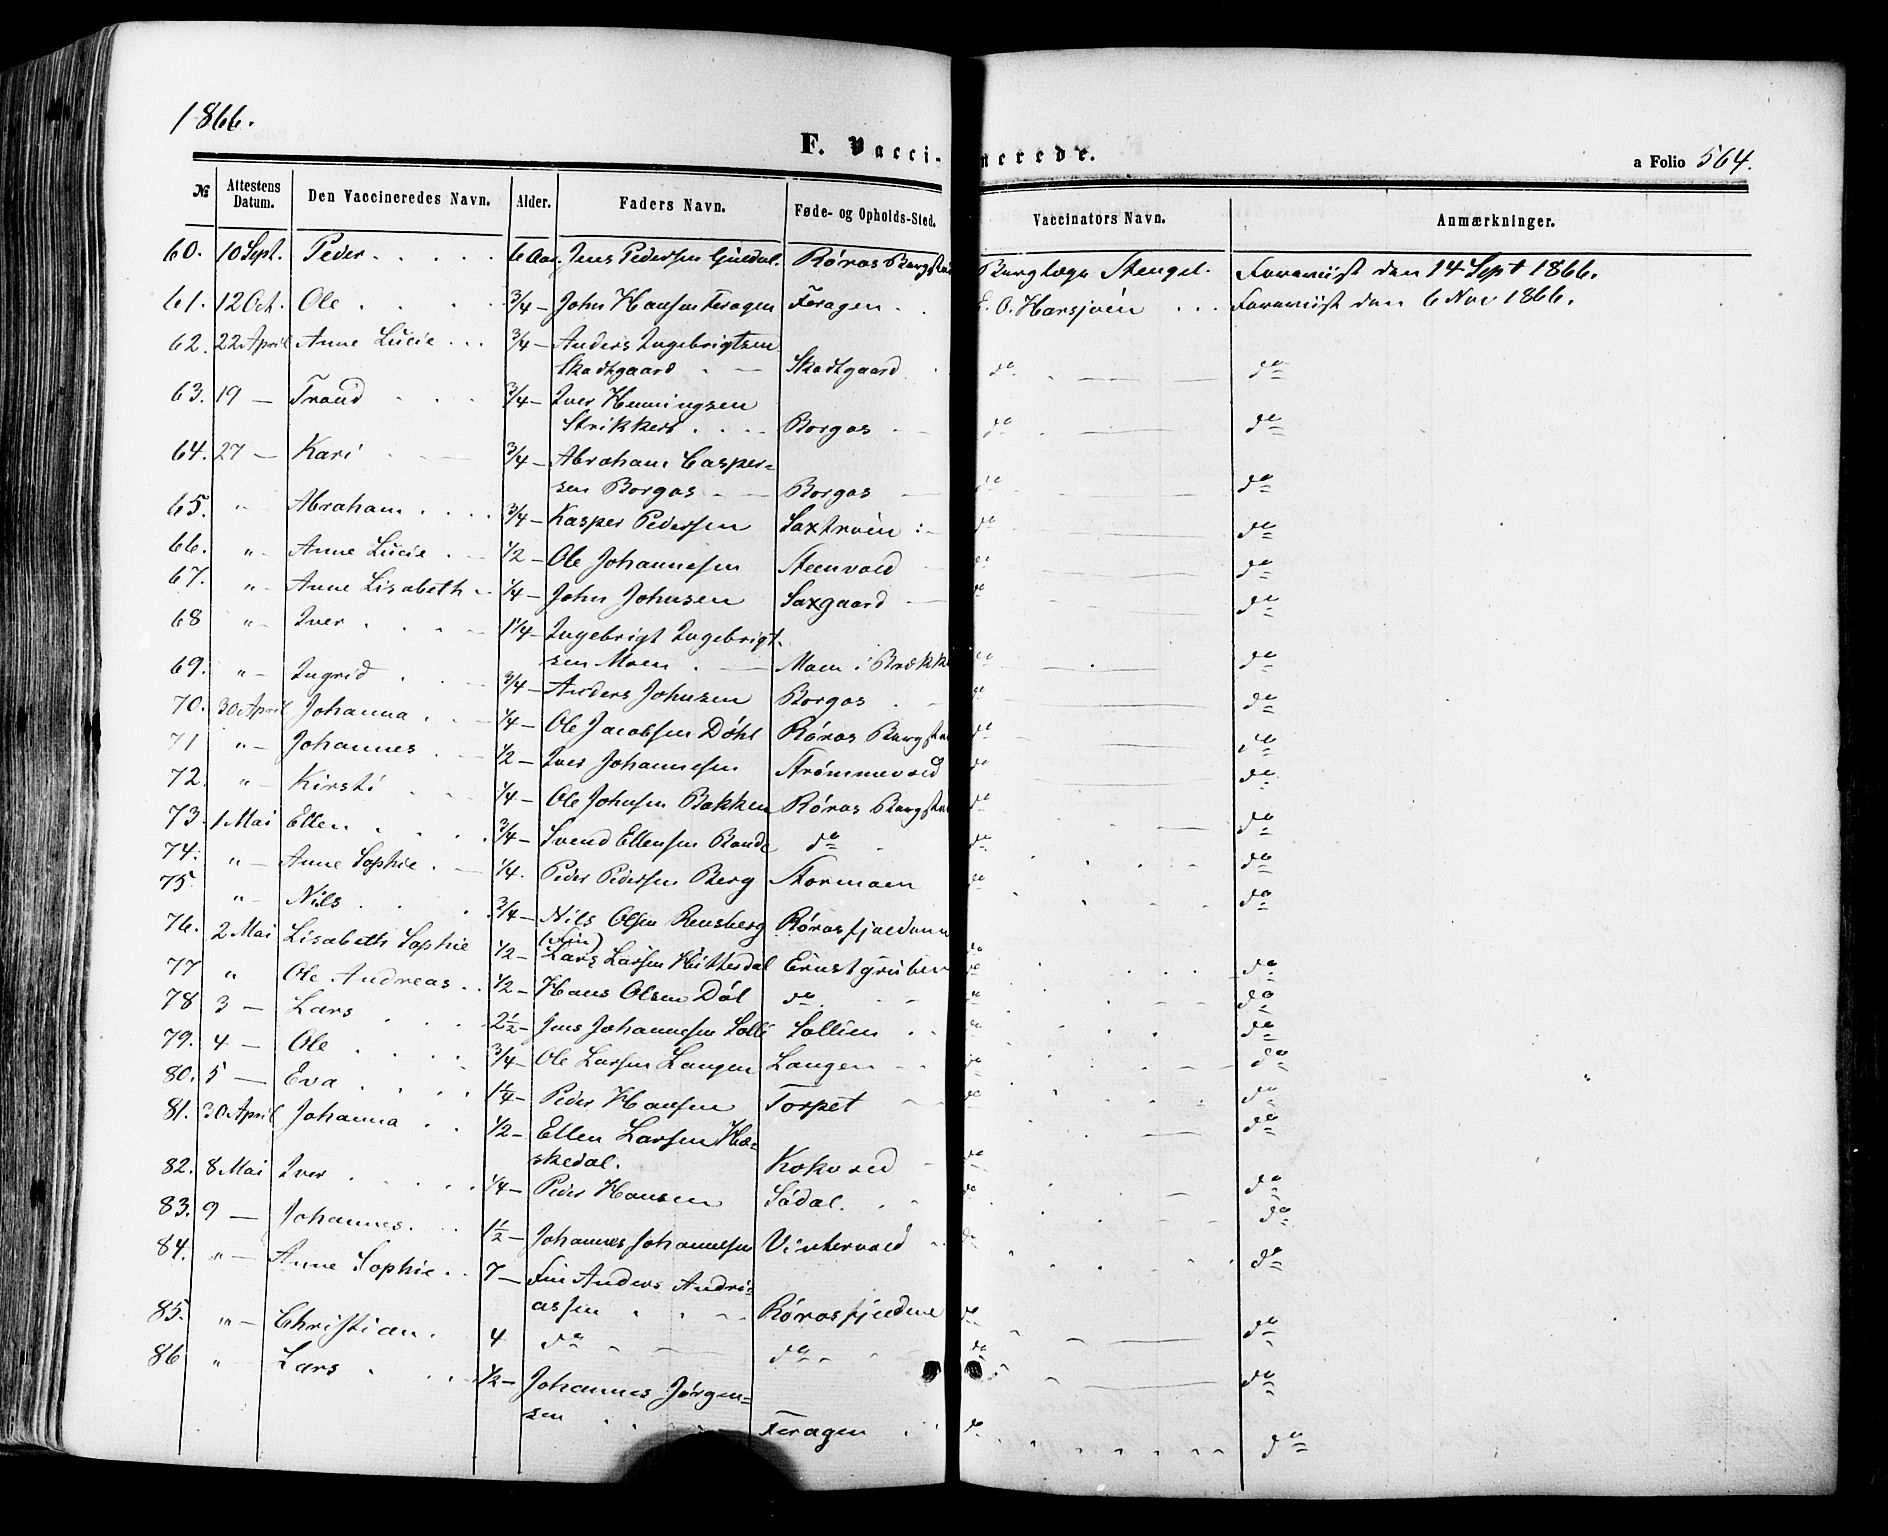 1866.
F. Vaccinerede.
a Folio 564.
№ Attestens Datum. Den Vaccineredes Navn. Alder. Faders Navn. Føde- og Opholds-Sted. Vaccinators Navn. Anmærkninger.
60. 10 Sept. Peder 6 Aar Jens Pedersen Røros Bergstad Berglæge Stengel. Foreviist den 14 Sept 1866.
61. 12 Oct. Ole 3/4 - John Hansen Feragen Feragen E. O. Harsjøen Foreviist den 6 Nov 1866.
62. 22 April Anne Lucie 3/4 - Anders Ingebrigtsen
Skadtgaard Skadtgaard do do
63. 19 — Trond 3/4 - Iver Henningsen
Strikkert Borgos do do
64. 27 — Kari 3/4 - Abraham Casper=
sen Borgos Borgos do do
65. " - Abraham 3/4 - Kasper Pedersen do do
66. " - Anne Lucie 1/2 - Ole Johannesen Steenvold do do
67. " - Anne Lisabeth 1/4 - John Johnsen Saxgaard do do
68 " - Iver 1 1/4 - Ingebrigt Ingebrigt-
sen Moen Moen i Brække do do
69. " - Ingrid 3/4 - Anders Johnsen Borgos do do
70. 30 April Johanna 1/4 - Ole Jacobsen Døhl Røros Bergstad do do
71 " - Johannes 1/2 - Iver Johannesen Strømmevold do do
72. " - Kirsti 1/4 - Ole Johnsen Bakken Røros Bergstad do do
73. 1 Mai Ellen 3/4 - Svend Ellensen Rande do do do
74. " - Anne Sophie 1/4. Peder Pedersen Berg Stormoen do do
75. " - Nils 3/4 - Nils Olsen Rensberg Rørosfjeldene
(Fin)
76. 2 Mai Lisabeth Sophie 1/2 - Lars Larsen Hittesdal Ernstgruben do do
77 " Ole Andreas 1/2 - Hans Olsen Døl do do do
78 3 — Lars 2 1/2 - Jens Johannesen Solli Sollien do do
79. 4 — Ole 3/4 - Ole Larsen Langen Langen do do
80. 5 — Eva 1 1/4 - Peder Hansen Torpet do do
81. 30 April Johanna 1/2 - Ellen Larsen Hæ-
skedal. Kokvold do do
82. 8 Mai Iver 1/4 - Peder Hansen Sødal. do do
83. 9 — Johannes. 1 1/2 - Johannes Johannesen Vintervold do do
84. " - Anne Sophie 7 — Fin Anders Andri-
assen Rørosfjeldene do do
85. " - Christian. 4 do do do do
86 " - Lars 1/2 - Johannes Jørgen=
sen Feragen do do